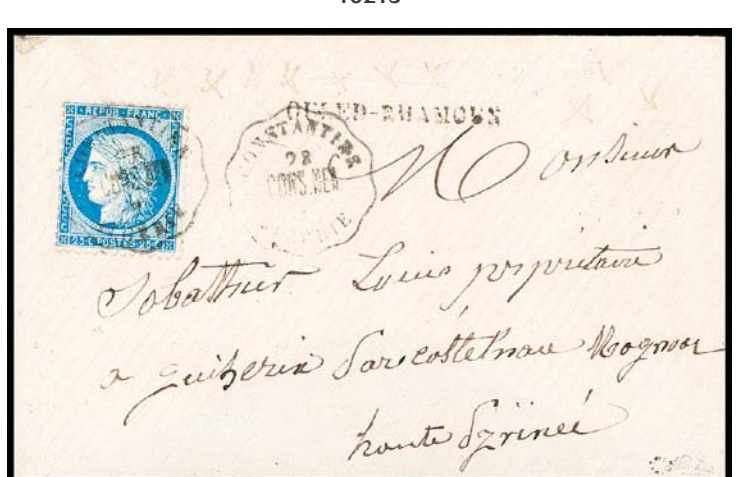 REPUB · FRANC
25 c POSTES 25 c
OULED-RHAMOUN
CONSTANTINE
28
CONS.MEN
ALGERIE
Monsieur
Sabathier Louis propriétaire
a guizerix Par castelnau Magnoac
haute Pyrineé